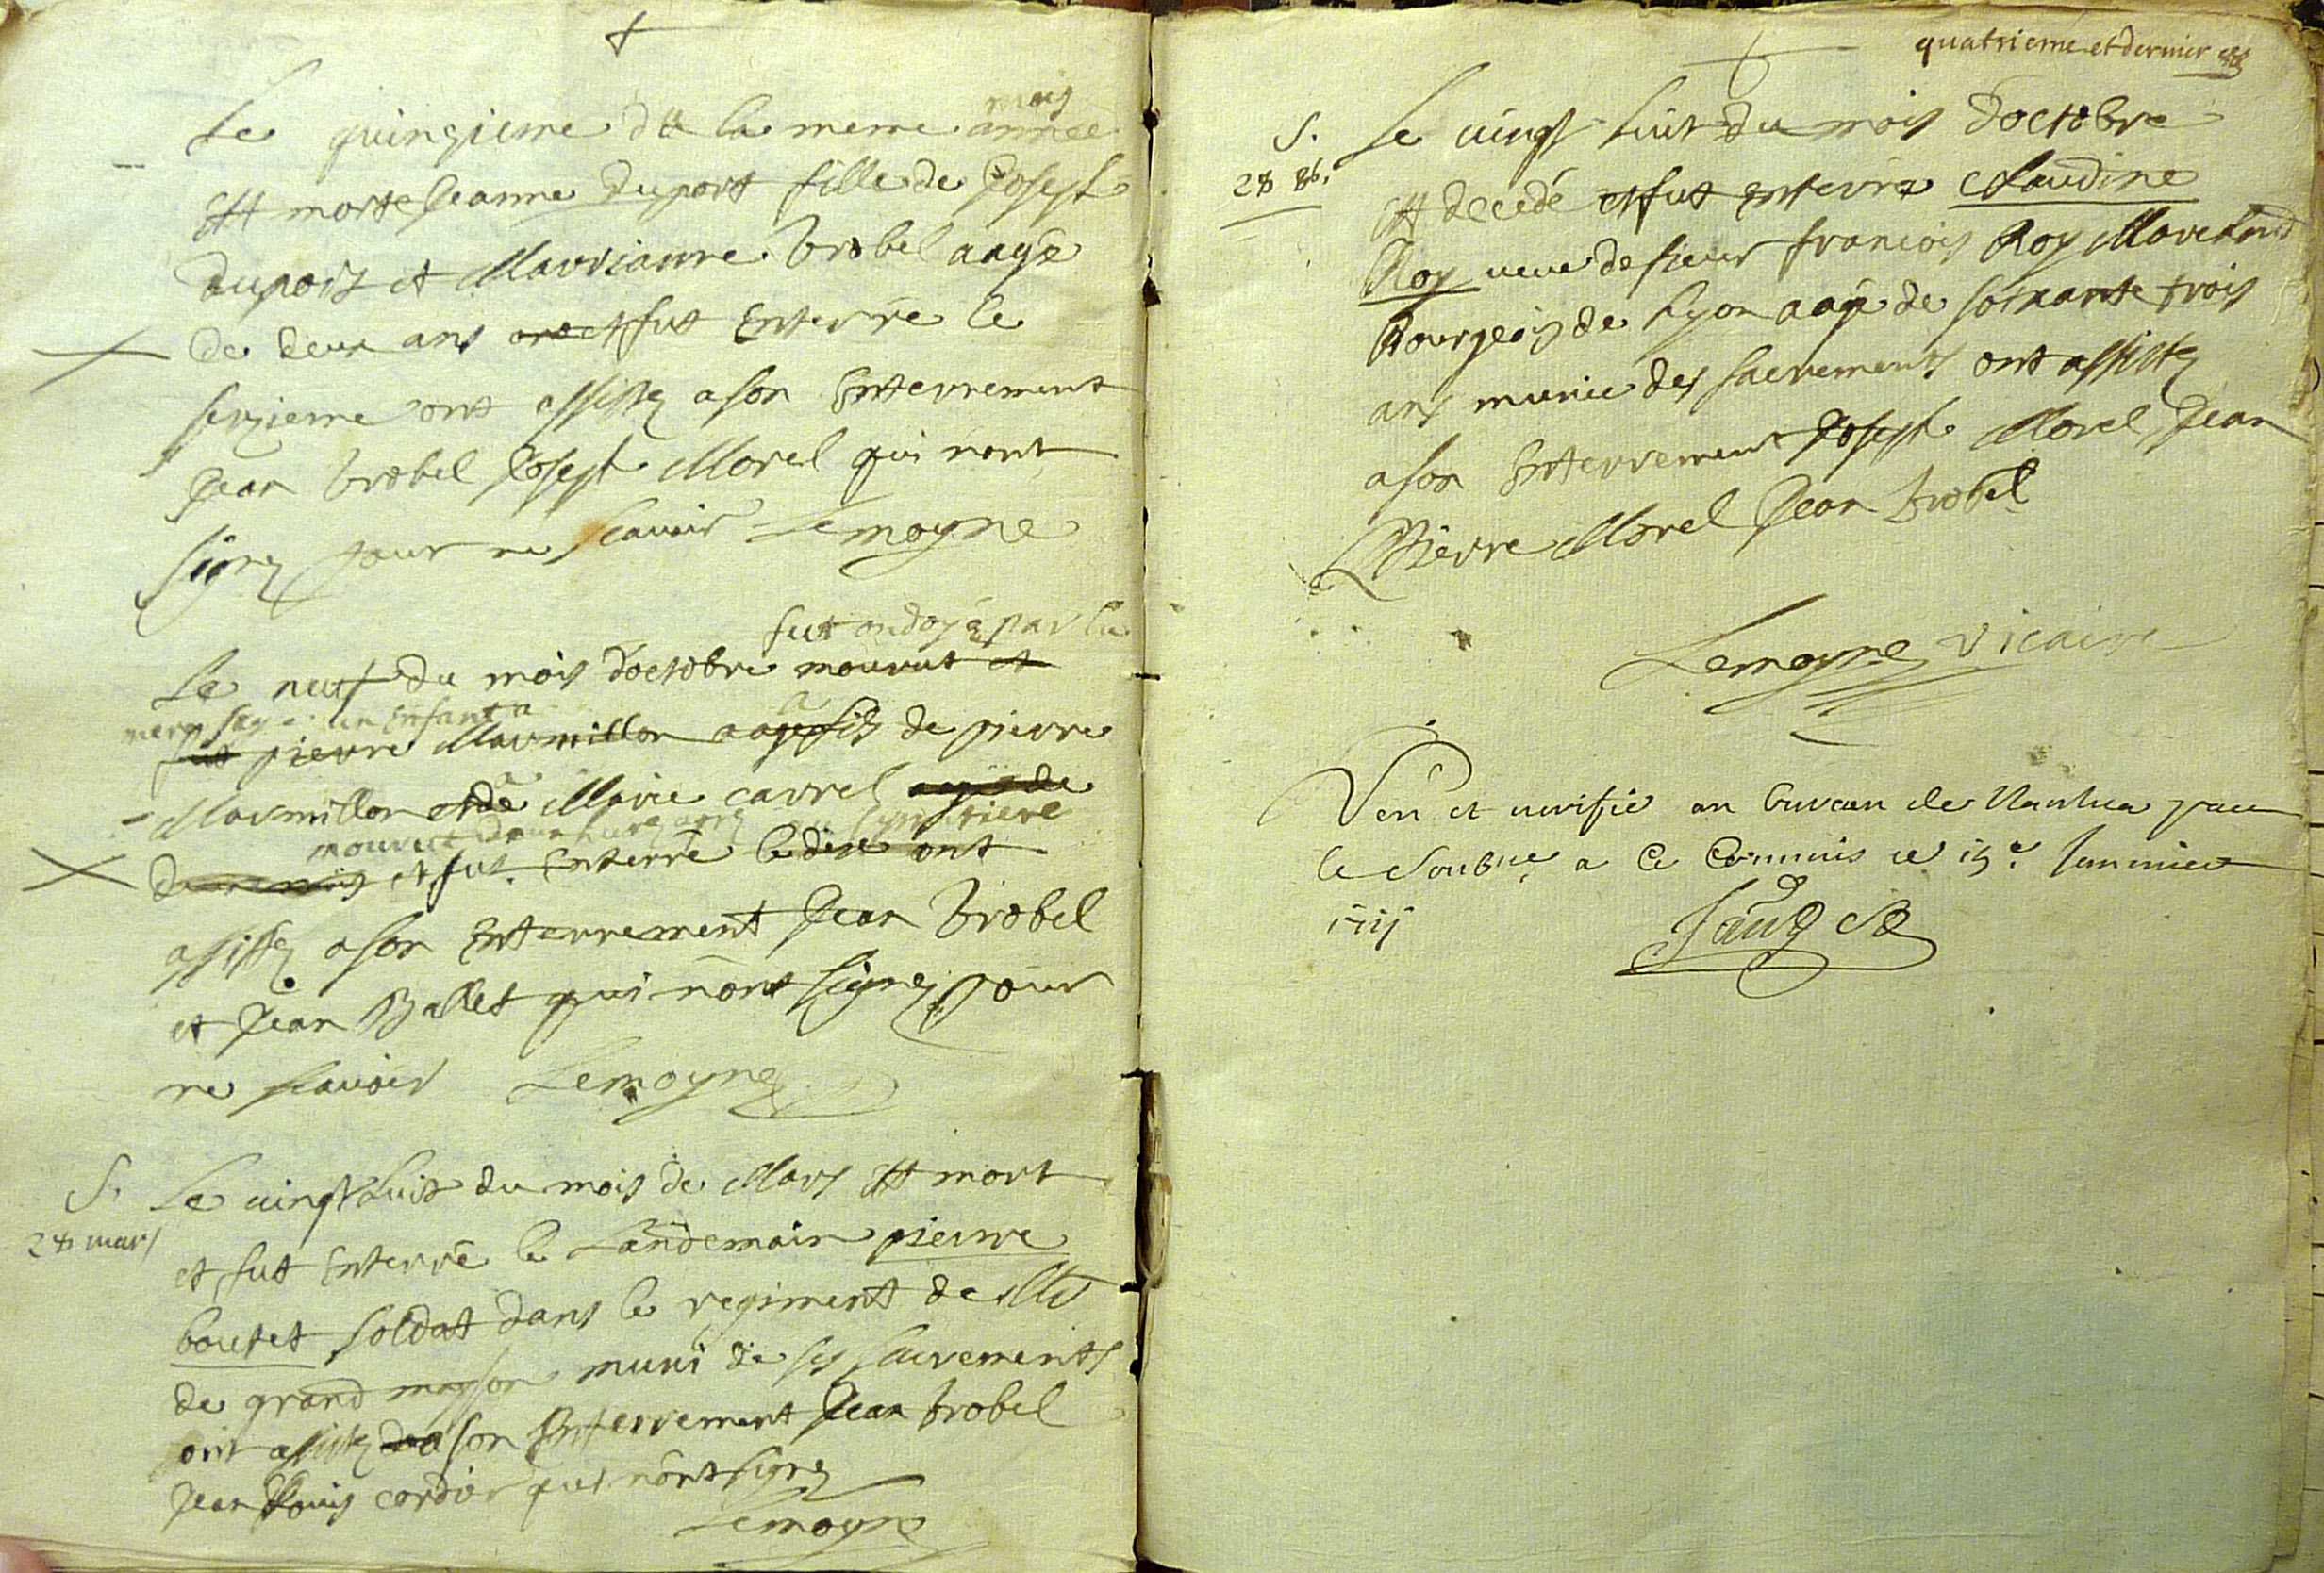 mois
Le quinzieme de la meme année
est morte Jeanne duport fille de Joseph
duport et Marrianne brobel aagé
de deux ans et fut enterré le
sezieme ont assistez a son enterrement
Jean brobel Joseph Morel qui nont
signez pour ne scavoir Lemoyne
fut ondoyé par la
Le neuf du mois d'octobre mourut et
mere sage un enfant a
fut pierre Marmillon aagé fils de pierre
Marmillon et de Marie carrel aagé de
mourut deux hures apres cymetiere
et fut enterré le dixe ont
assistez a son enterrement Jean brobel
et Jean Ballet qui nont signez pour
ne scavoir Lemoyne
S. Le vingt huit du mois de Mars est mort
28 mars
et fut enterré le Landemain pierre
boutet soldat dans le regiment de Mr
de grand mayson muni de ses sacrements
ont assistez a son enterrement Jean brobel
Jean Louis cordier qui nont signez
Lemoyne
quatrieme et dernier
S. Le vingt huit du mois d'octobre
28 8b.
est decedé et fut enterré Claudine
Roy veuve de sieur francois Roy Marchand
Bourgeois de Lyon aagé de soixante trois
ans munie des sacrements ont assistez
a son enterrement Joseph Morel Jean
Pierre Morel Jean brobel
Lemoyne vicaire
Veu et verifié au bureau de Nantua par
le Soubné a ce Commis ce 15e Janvier
1711